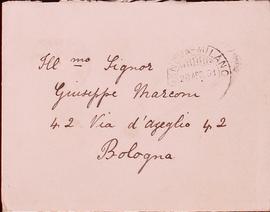 Ill mo Signor
Giuseppe Marconi
42 Via d'Azeglio 42
Bologna
MILANO